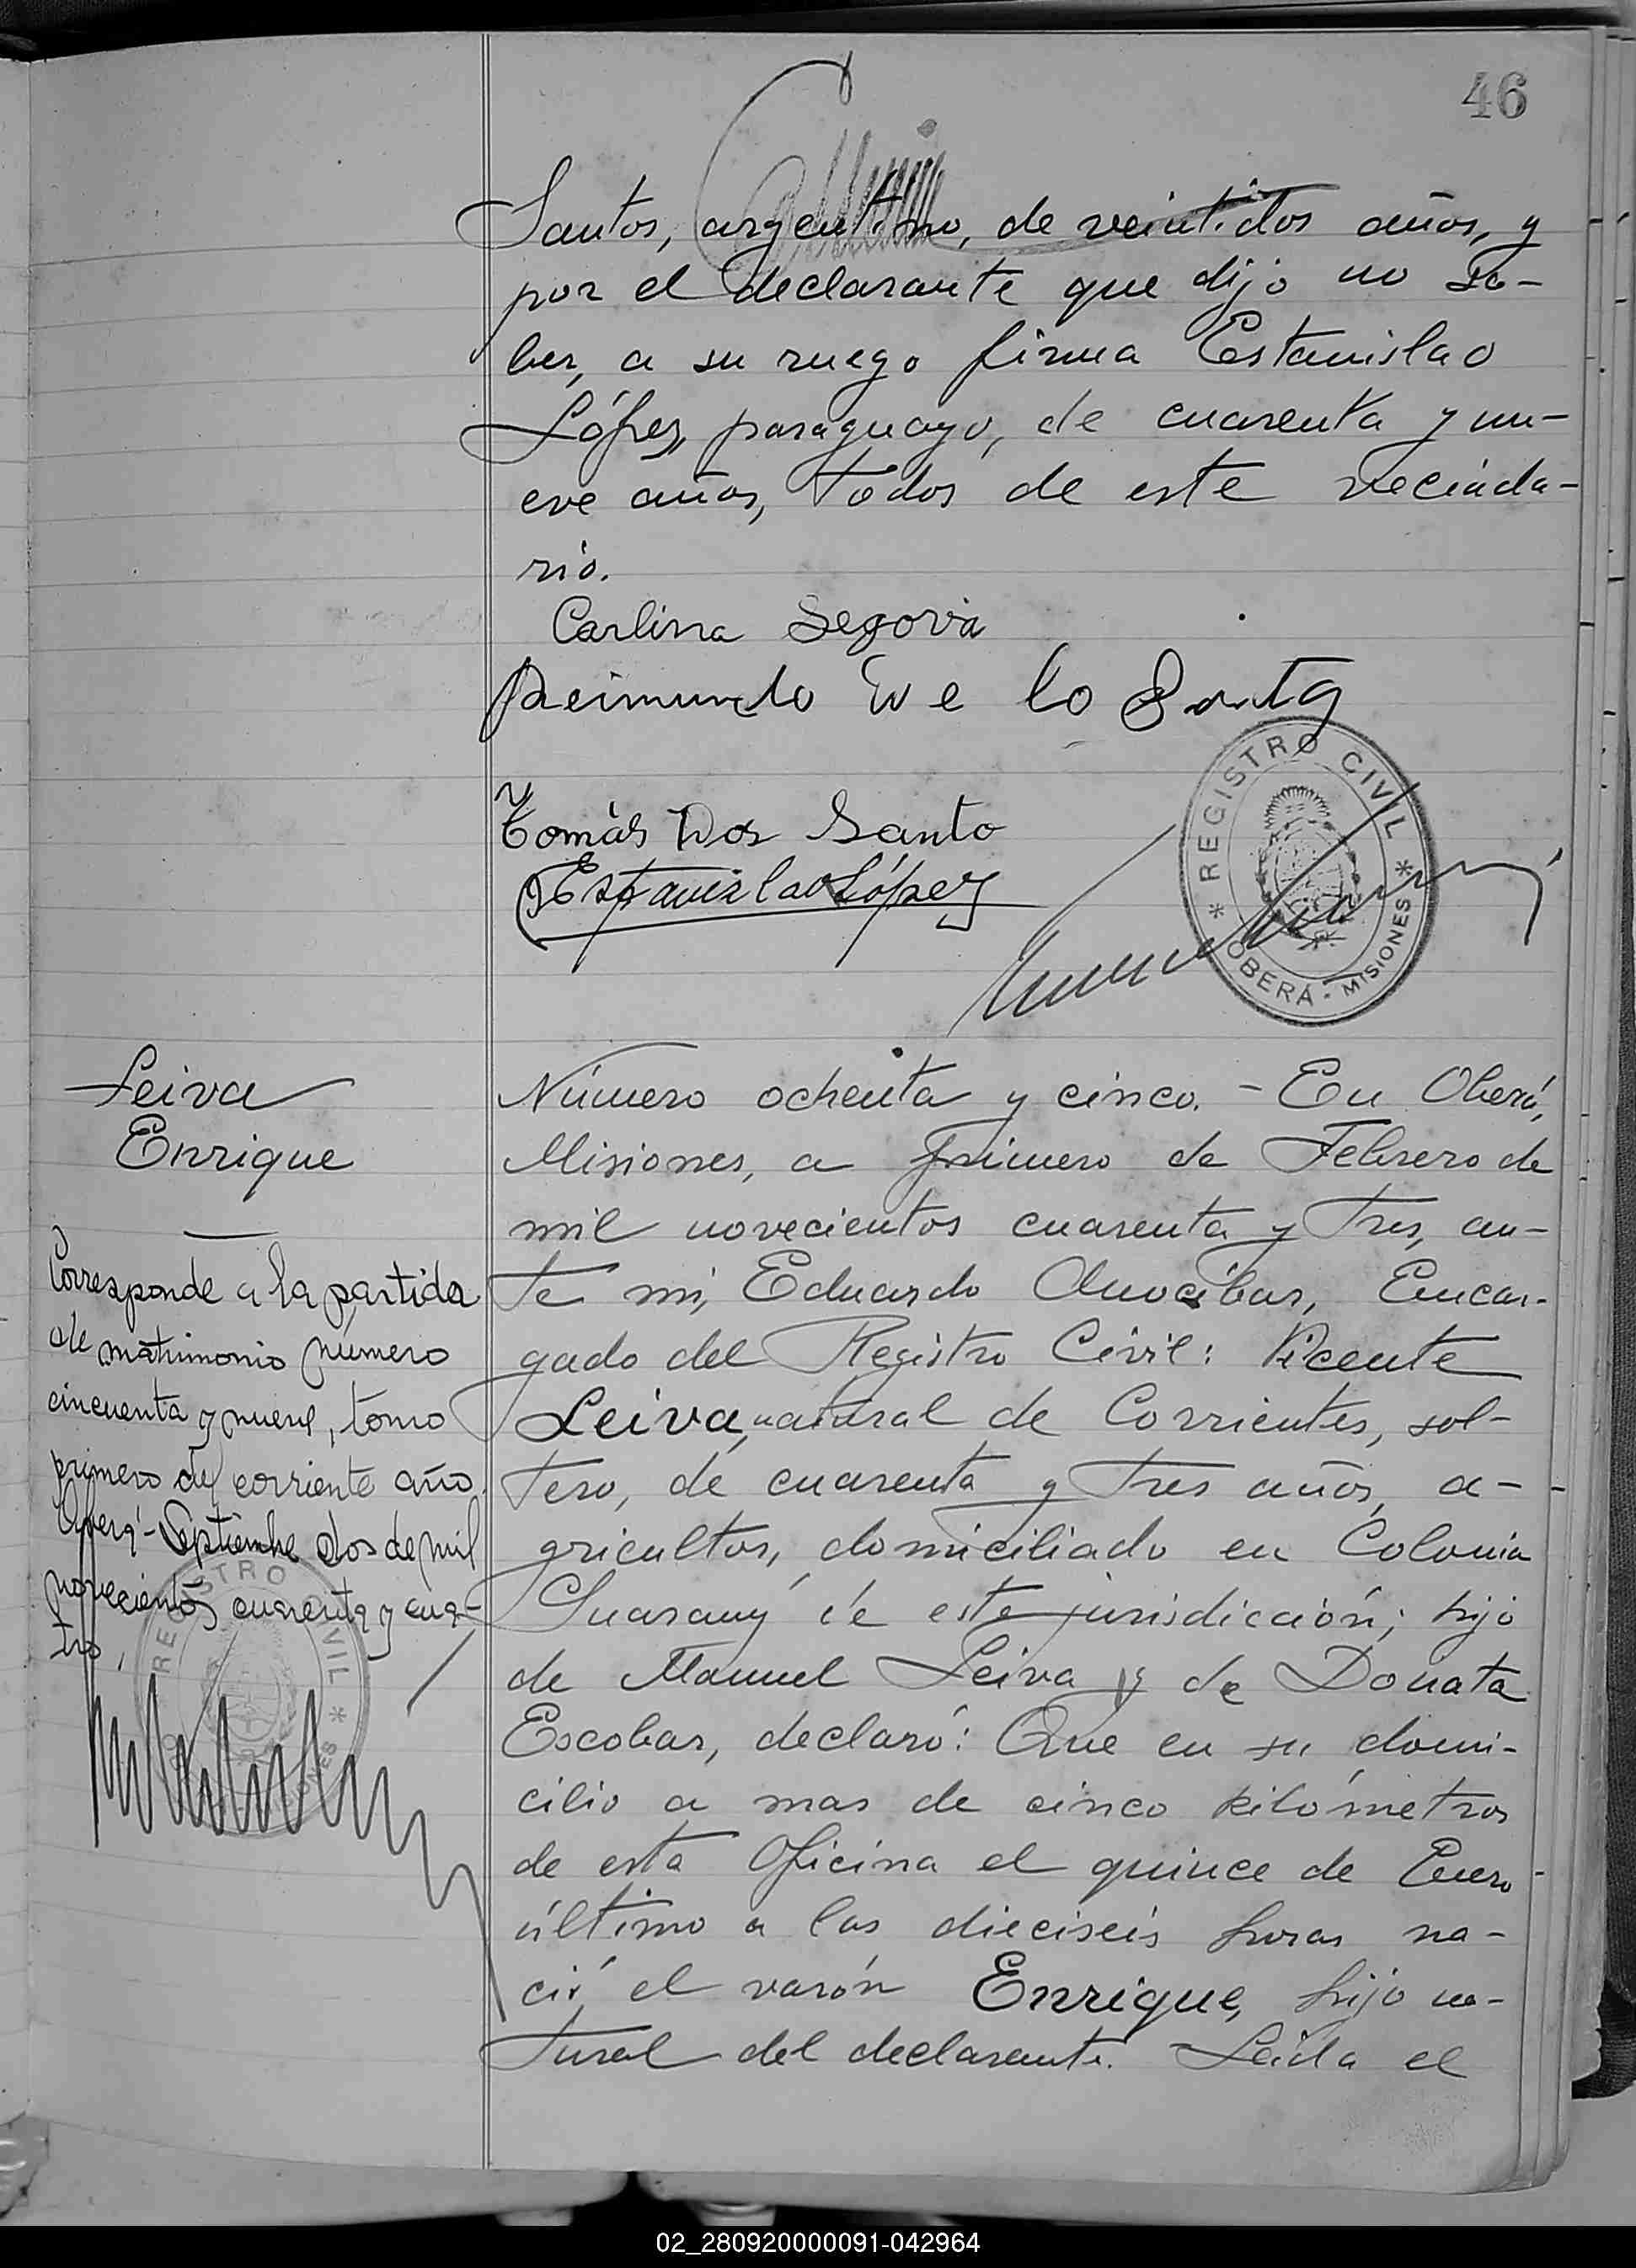 46
Santos, argentino, de veintidos años, y
por el declarante que dijo no sa-
ber, a su ruego firma Estanislao
López, paraguayo, de cuarenta y nu-
eve años, todos de este vecinda-
rio.
Carlina Segovia
Reimundo
Tomás Dos Santo
Estanislao López
REGISTRO CIVIL
* OBERÁ - MISIONES *
Leiva
Enrique
Corresponde a la partida
de matrimonio número
cincuenta y nueve, tomo
primero del corriente año.
Oberá - Septiembre dos de mil
novecientos cuarenta y cua-
tro,
REGISTRO CIVIL
Número ochenta y cinco. - En Oberá,
Misiones, a primero de Febrero de
mil novecientos cuarenta y tres, an-
te mi, Eduardo Anocíbar, Encar-
gado del Registro Civil: Vicente
Leiva, natural de Corrientes, sol-
tero, de cuarenta y tres años, a-
gricultor, domiciliado en Colonia
Guarany de este jurisdicción; hijo
de Manuel Leiva y de Donata
Escobar, declaró: Que en su domi-
cilio a mas de cinco kilómetros
de esta Oficina el quince de Enero
último a las dieciseis horas na-
ció el varón Enrique, hijo na-
tural del declarante. Leída el
02_280920000091-042964